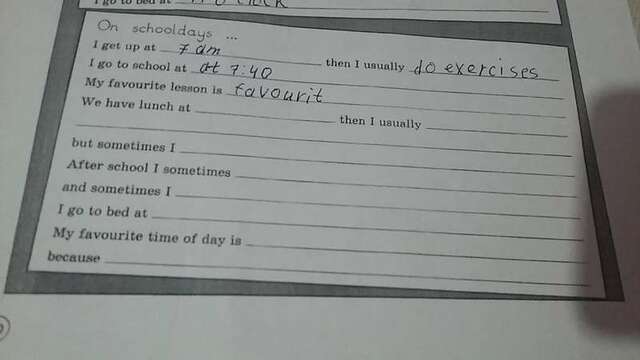 I go to bed at 11 o'clock
On schooldays ...
I get up at 7 am then I usually do exercises
I go to school at at 7:40
My favourite lesson is favourit
We have lunch at then I usually
but sometimes I
After school I sometimes
and sometimes I
I go to bed at
My favourite time of day is
because